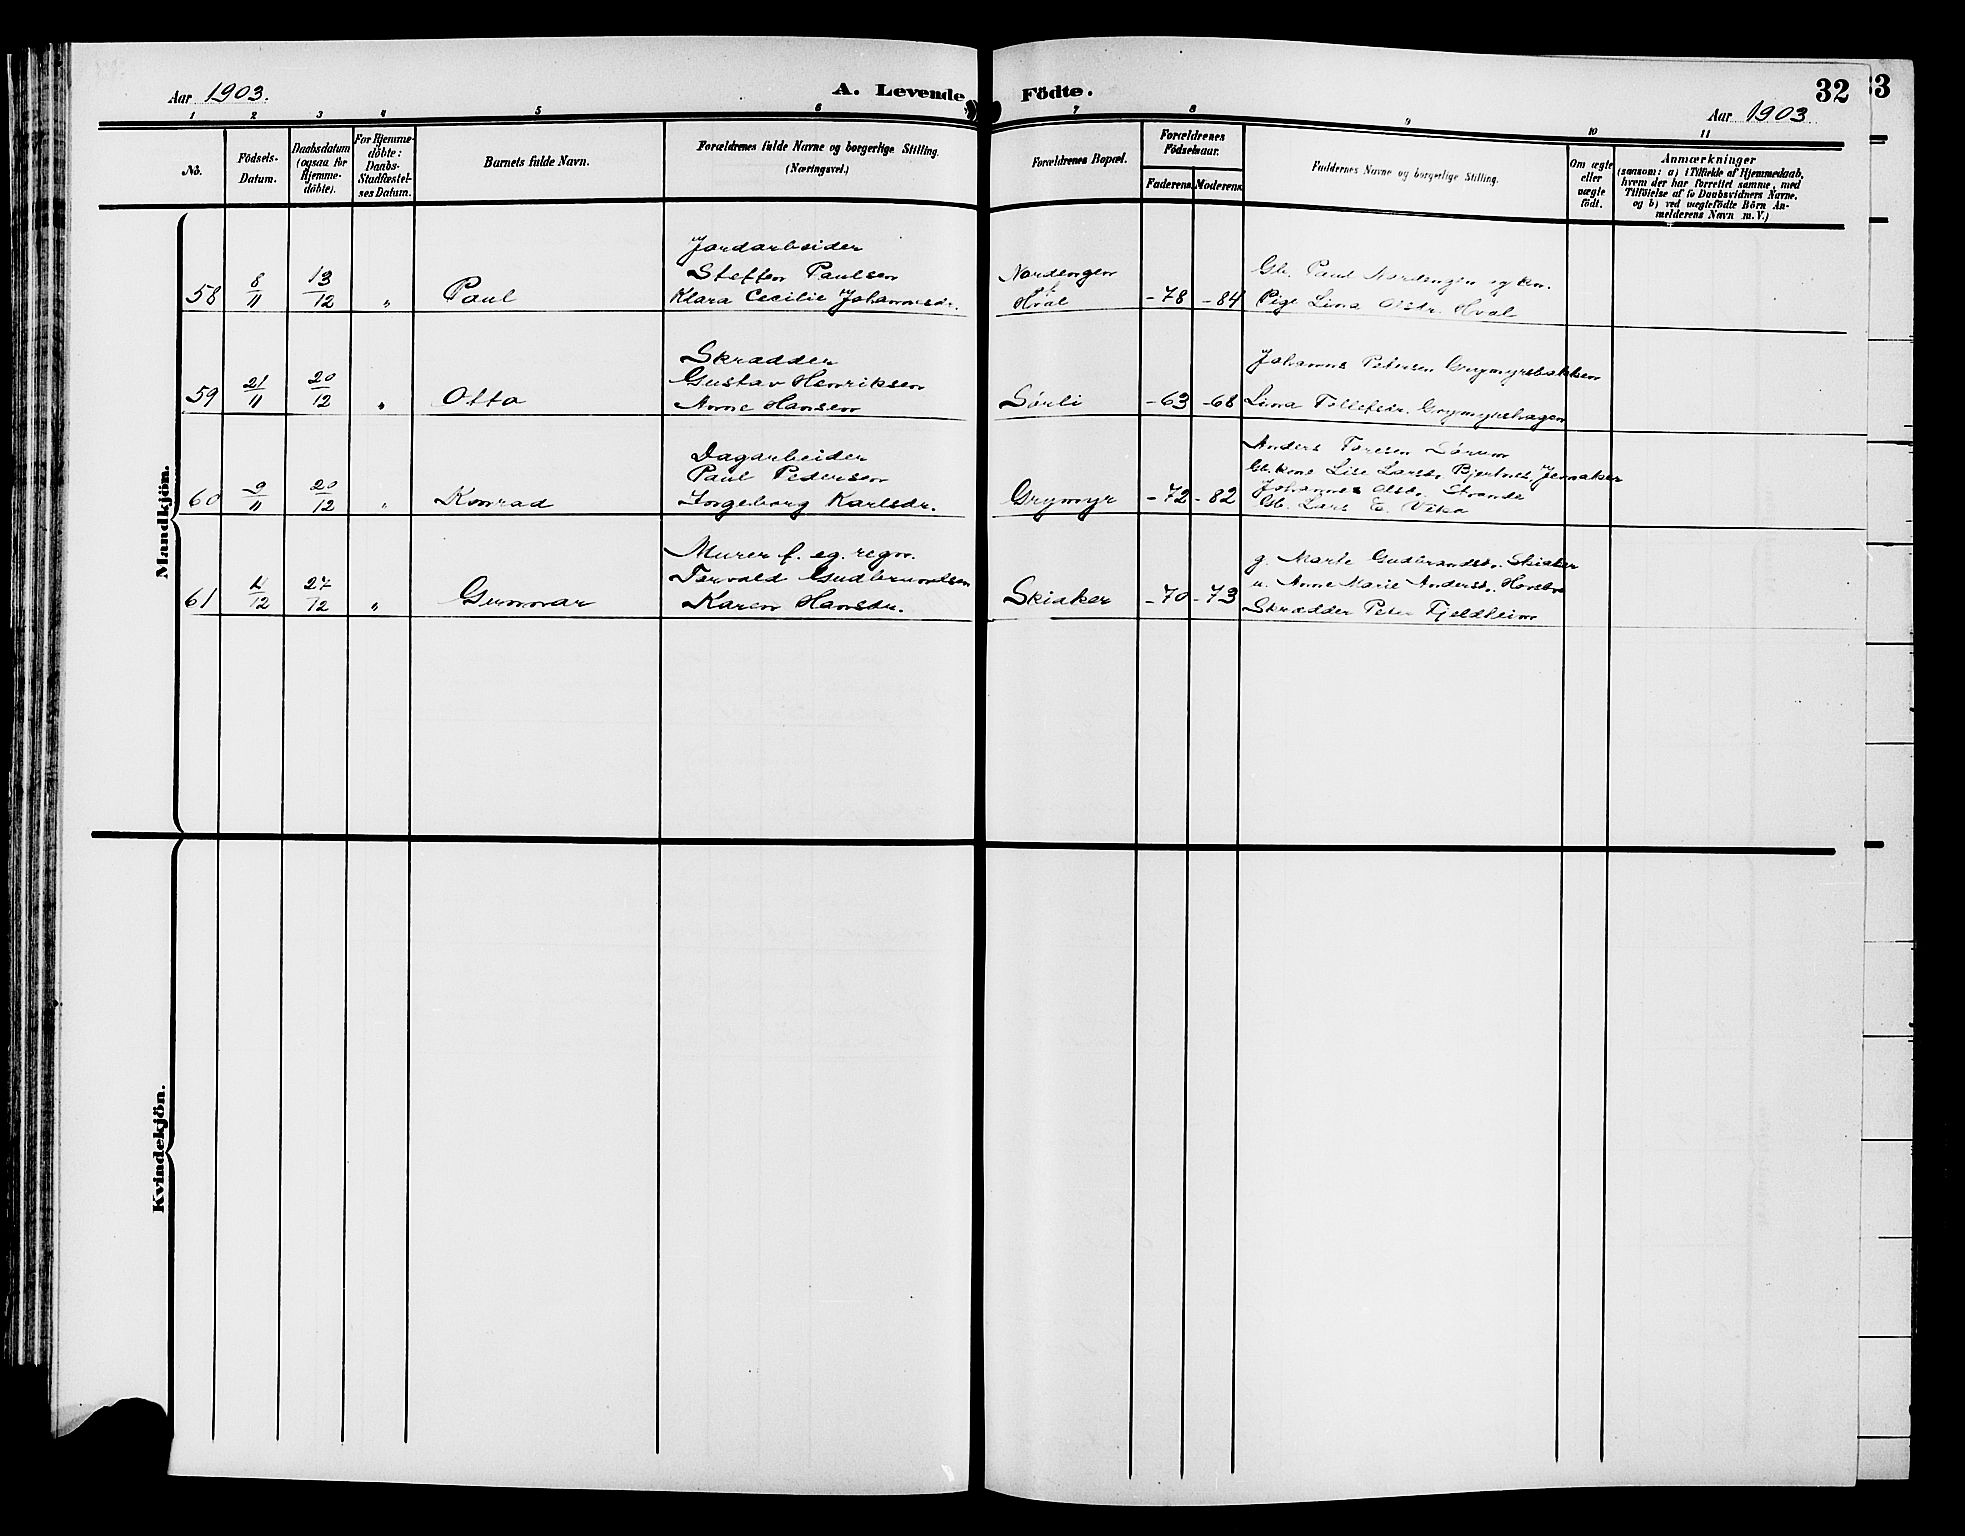 Aar 1903. A. Levende Födte. 32 33
Aar 1903
1 2 3 4 5 6 7 8 9 10 11
No.
Födsels-
Datum.
Daabsdatum
(ogsaa for
Hjemme-
döbte).
For Hjemme-
döbte:
Daabs-
Stadfæstel-
ses Datum.
Barnets fulde Navn.
Forældrenes fulde Navne og borgerlige Stilling.
(Næringsvei.)
Forældrenes Bopæl.
Forældrenes
Födselsaar.
Faderens. Moderens.
Faddernes Navne og borgerlige Stilling.
Om ægte
eller
uægte
födt.
Anmærkninger
(saasom: a) i Tilfælde af Hjemmedaab,
hvem der har forrettet samme, med
Tilföielse af to Daabsvidners Navne,
og b) ved uægtefödte Börn An-
melderens Navn m. V.)
Mandkjön.
58 8/11 13/12 " Paul
Jordarbeider
Steffen Paulsen
Klara Cecilie Johannesdr.
Nordengen
Hval
-78 -84
Gb. Paul Nordengen og kn.
Pige Lina Olsdr. Hval
59 21/11 20/12 " Otto
Skrædder
Gustav Henriksen
Anne Hansen
Sørli -63 -68
Johannes Petersen Grymyrsbakken
Lina Tollefsdr. Grymyrshagen
60 9/11 20/12 " Konrad
Dagarbeider
Paul Pedersen
Ingeborg Karlsdr.
Grymyr -72 -82
Anders Toresen Sørum
Gbkone Lise Larsdr. Bjertnes Jevnaker
Johannes Olsdr. Strande
Gb. Lars E. Vika
61 4/12 27/12 " Gunnar
Murer f. eg. regn.
Torvald Gudbrandsen
Karen Hansdr.
Skiaker -70 -73
g. Marte Gudbrandsdr. Skiaker
u. Anne Marie Andersdr.
Skrædder Peter Fjeldheim
Kvindekjön.